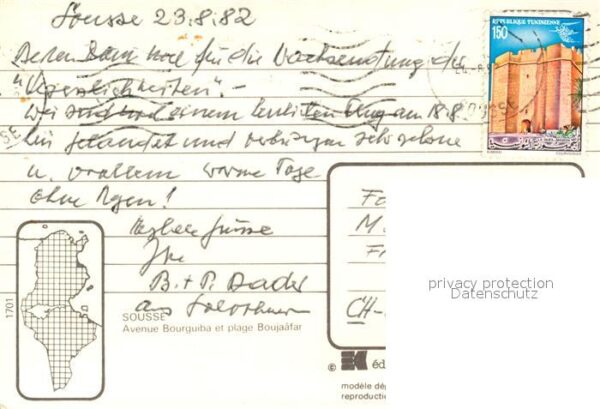 Sousse 23.8.82
REPUBLIQUE TUNISIENNE
150
Besten Dank noch für die Nachsendung der
"Herzlichkeiten".-
Wir sind nach einem guten Flug am 18.8
hier gelandet und verbringen sehr schöne
u. vor allem warme Tage
ohne Regen!
Herzliche Grüsse
Ihre
B. + P.
aus Solothurn
Fa
M.
F
CH-
privacy protection
Datenschutz
1701
SOUSSE
Avenue Bourguiba et plage Boujaâfar
© éd
modèle dép
reproductio